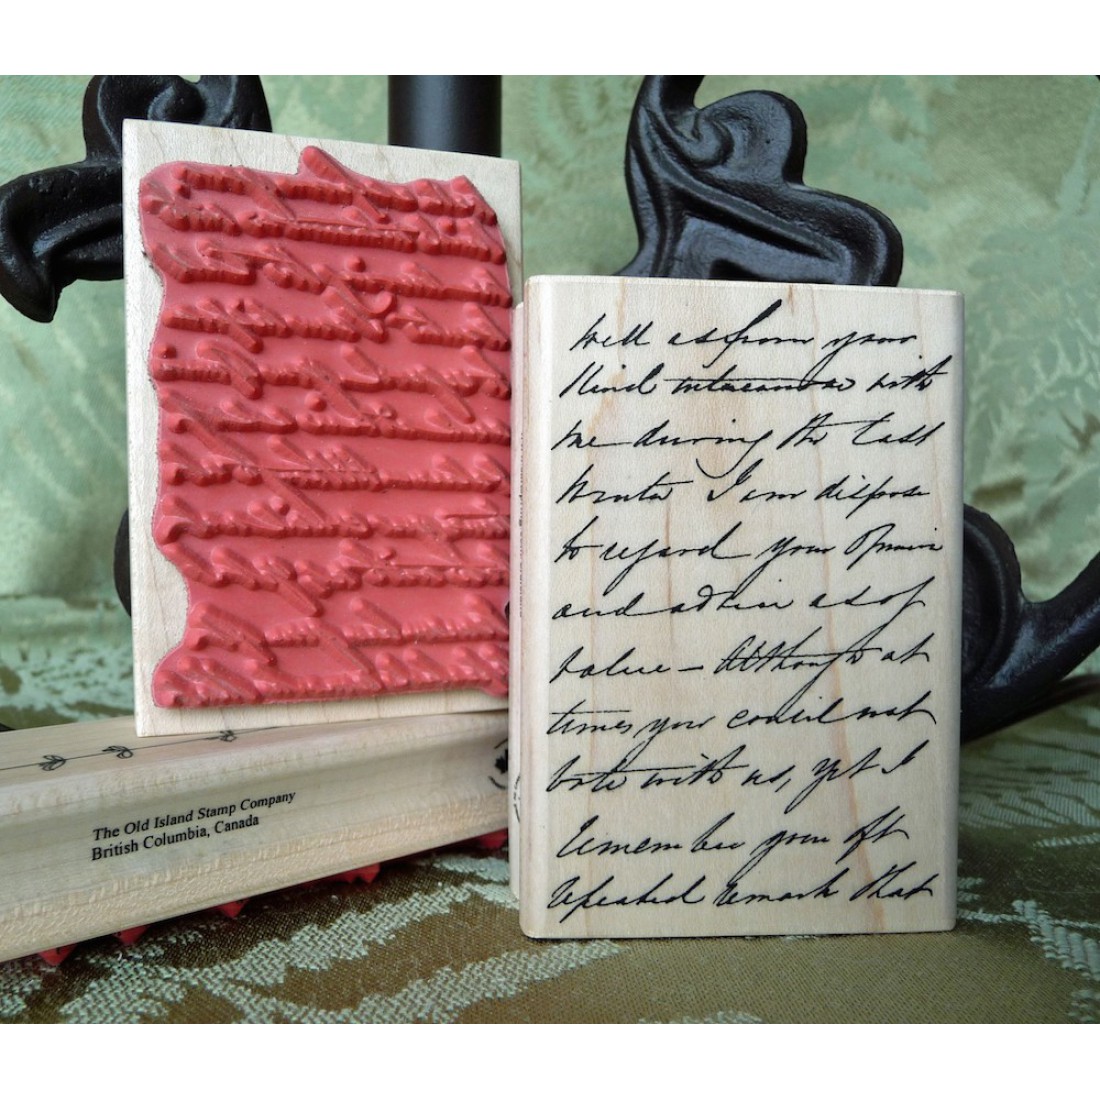 Well as from your
kind intercourse with
me during the last
Winter I am dispose
to regard your Opinion
and advice as of
value – Although at
times you could not
vote with us, yet I
remember your oft
repeated remark that
The Old Island Stamp Company
British Columbia, Canada